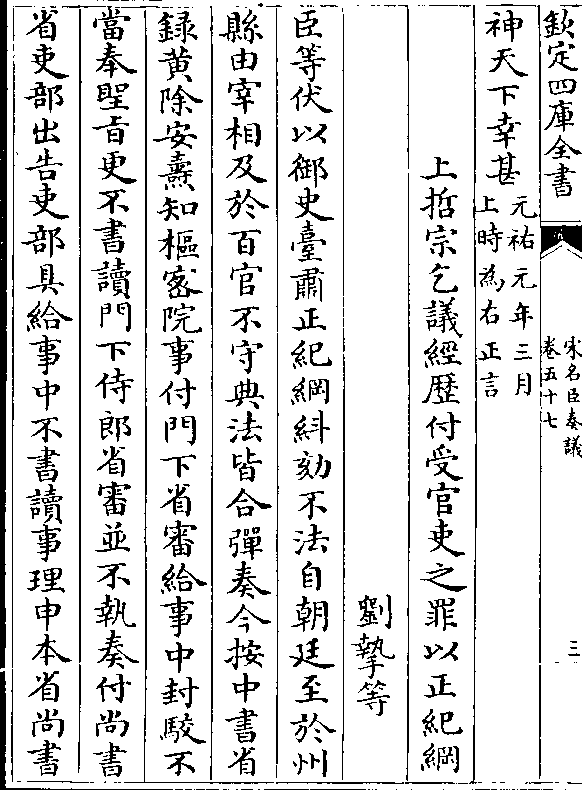 欽定四庫全書
宋名臣奏議
卷五十七
三
神天下幸甚元祐元年三月
上時為右正言
上哲宗乞議經歷付受官吏之罪以正紀綱
劉摯等
臣等伏以御史臺肅正紀綱糾劾不法自朝廷至於州
縣由宰相及於百官不守典法皆合彈奏今按中書省
録黄除安燾知樞密院事付門下省審給事中封駮不
當奉聖旨更不書讀門下侍郎省審並不執奏付尚書
省吏部出告吏部具給事中不書讀事理申本省尚書